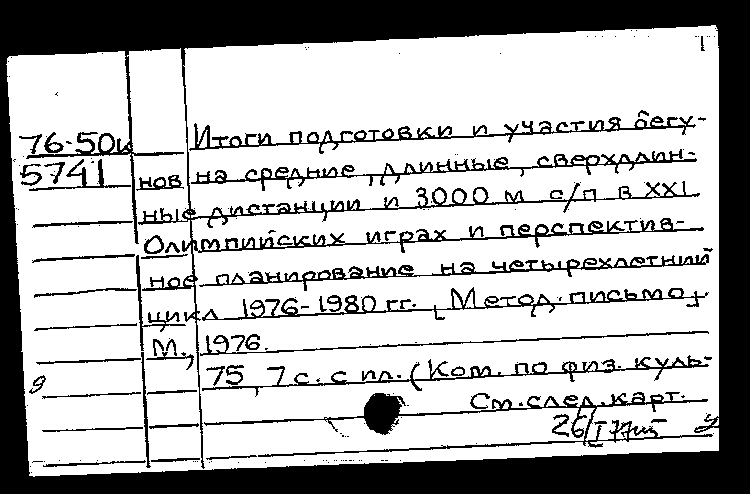 1
76-50к Итоги подготовки и участия бегу-
5741 нов на средние, длинные, сверхдлин-
ные дистанции и 3000 м с/п в XXI
Олимпийских играх и перспектив-
ное планирование на четырехлетний
цикл 1976-1980 гг. [Метод. письмо].
М., 1976.
75, 7 с. с ил. (Ком. по физ. куль-
См. след. карт.
26/I 77